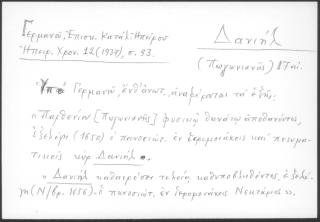 Γερμανοῦ, Ἐπισκ. Καταλ. Ἠπείρου
Ἠπειρ. Χρον. 12 (1937), σ. 93.
Δανιήλ
(Πωγωνιανῆς) 17 αἰ.
Ὑπὸ Γερμανοῦ, ἔνθ' ἄνωτ., ἀναφέρονται τὰ ἑξῆς:
ο Παρθενίου [Πωγωνιανῆς] φυσικῷ θανάτῳ ἀποθανόντος,
ἐξελέγη (1650) ὁ πανοσιώτ. ἐν ἱερομονάχοις καὶ πνευμα-
τικοῖς κὺρ Δανιήλ.
ο Δανιὴλ καθαιρέσει τελείᾳ καθυποβληθέντος, ἐξελέ-
γη (Ν/βρ. 1656) ὁ πανοσιώτ. ἐν ἱερομονάχοις Νεκτάριος